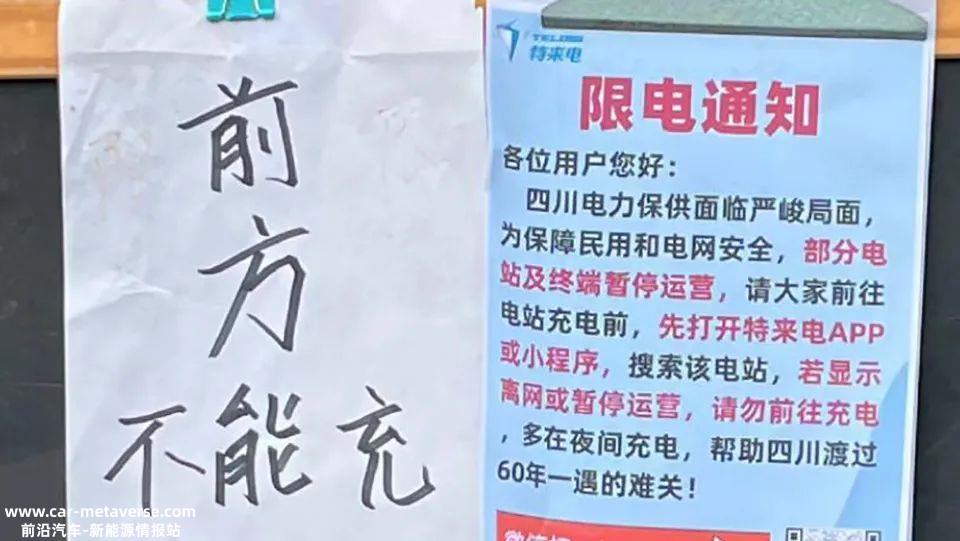 前
方
不能充
特来电
限电通知
各位用户您好：
四川电力保供面临严峻局面，
为保障民用和电网安全，部分电
站及终端暂停运营，请大家前往
电站充电前，先打开特来电APP
或小程序，搜索该电站，若显示
离网或暂停运营，请勿前往充电
，多在夜间充电，帮助四川渡过
60年一遇的难关！
www.car-metaverse.com
前沿汽车-新能源情报站